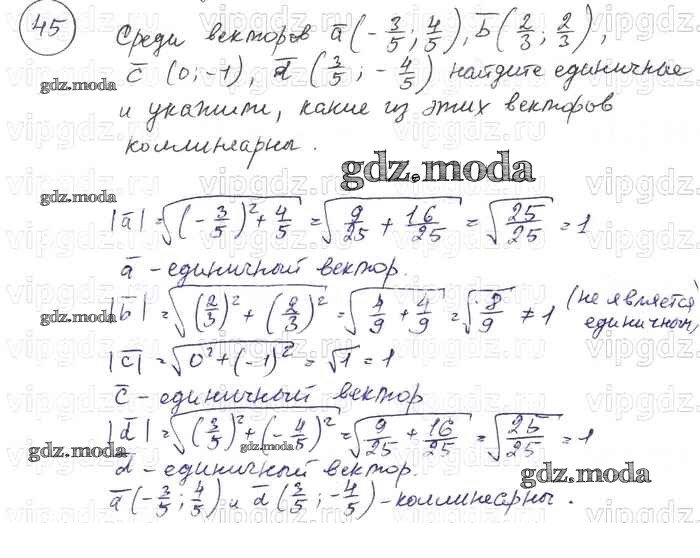 45
Среди векторов a̅(-3/5; 4/5), b̅(2/3; 2/3),
c̅ (0; -1), d̅ (3/5; -4/5) найдите единичные
gdz.moda
и укажите, какие из этих векторов
коллинеарны.
gdz.moda
gdz.moda
|a̅| = √((-3/5)² + 4/5) = √(9/25 + 16/25) = √(25/25) = 1
a̅ - единичный вектор.
|b̅| = √((2/3)² + (2/3)²) = √(4/9 + 4/9) = √(8/9) ≠ 1 (не является единичным)
gdz.moda
|c̅| = √(0² + (-1)²) = √1 = 1
c̅ - единичный вектор
|d̅| = √((3/5)² + (-4/5)²) = √(9/25 + 16/25) = √(25/25) = 1
gdz.moda
gdz.moda
d̅ - единичный вектор.
gdz.moda
a̅(-3/5; 4/5) и d̅(3/5; -4/5) - коллинеарны.
vipgdz.ru